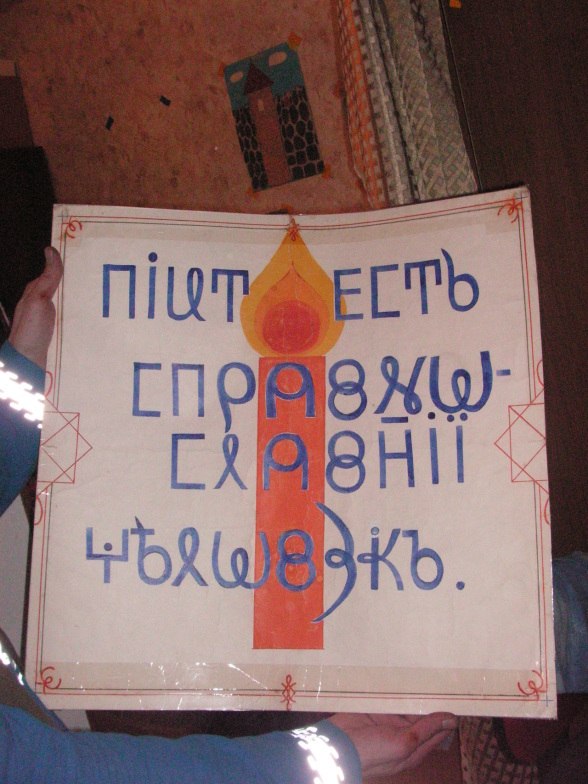 ПІИТ ЕСТЬ
СПРАВЖѠ-
СЛАВН̄ІЇ
ЧѢЛѠВЗКЪ.